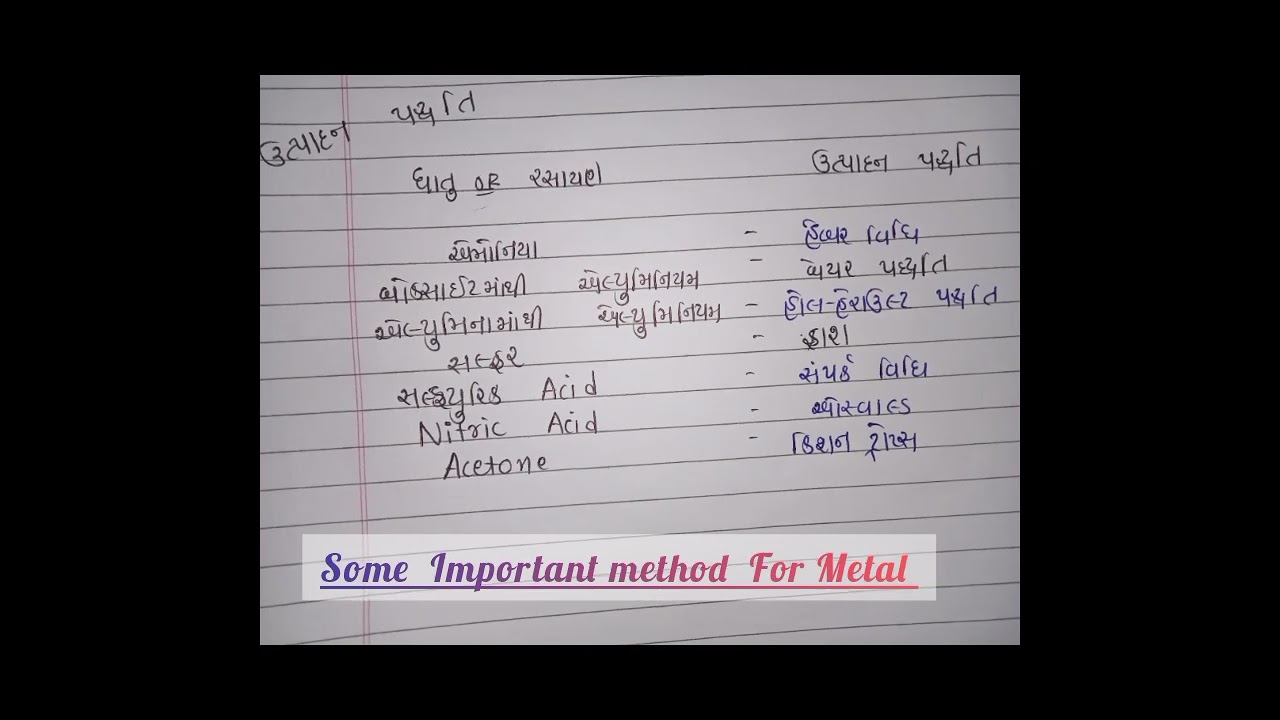 ઉત્પાદન પદ્ધતિ
ધાતુ OR રસાયણ ઉત્પાદન પદ્ધતિ
એમોનિયા - હેબર વિધિ
બોક્સાઈટમાંથી એલ્યુમિનિયમ - બેયર પદ્ધતિ
એલ્યુમિનામાંથી એલ્યુમિનિયમ - હોલ-હેરાઉલ્ટ પદ્ધતિ
સલ્ફર - ફ્રાશ
સલ્ફ્યુરિક Acid - સંપર્ક વિધિ
Nitric Acid - ઓસ્વાલ્ડ
Acetone - ફિશન ટ્રોપ્સ
Some Important method For Metal